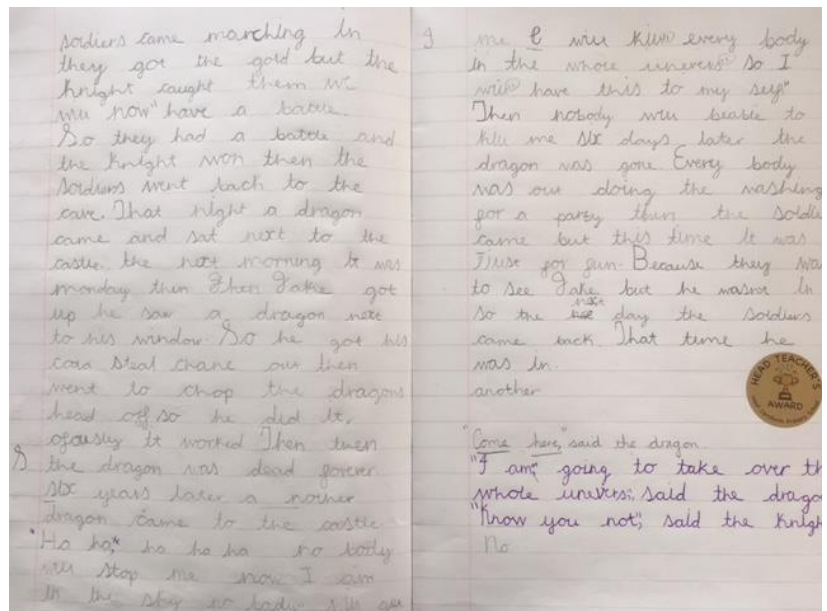 soldiers came marching in
they got the gold but the
knight caught them we
wiu now" have a battle.
So they had a battle and
the knight won then the
soldiers went back to the
cave. That night a dragon
came and sat next to the
castle. the next morning it was
monday then Jake got
up he saw a dragon next
to his window. So he got his
steal out then
went to chop the dragons
head off so he did it.
ofcusly it worked Then
the dragon was dead forever
six years later a nother
dragon came to the castle
"Ha ha," ha ha ha no body
wiu stop me now I am
in the sky no body
me wiu kiu every body
in the whole so I
have this to my self"
Then nobody wiu beable to
kiu me six days later the
dragon was gone. Every body
was out doing the washing
for a party then the soldie
came but this time it was
Just for fun. Because they wa
to see Jake but he wasnt in
so the next day the soldiers
came back. That time he
was in.
another
HEAD TEACHER'S
AWARD
"Come here," said the dragon.
"I am," going to take over th
whole univers", said the drago
"Know you not", said the Knigh
No